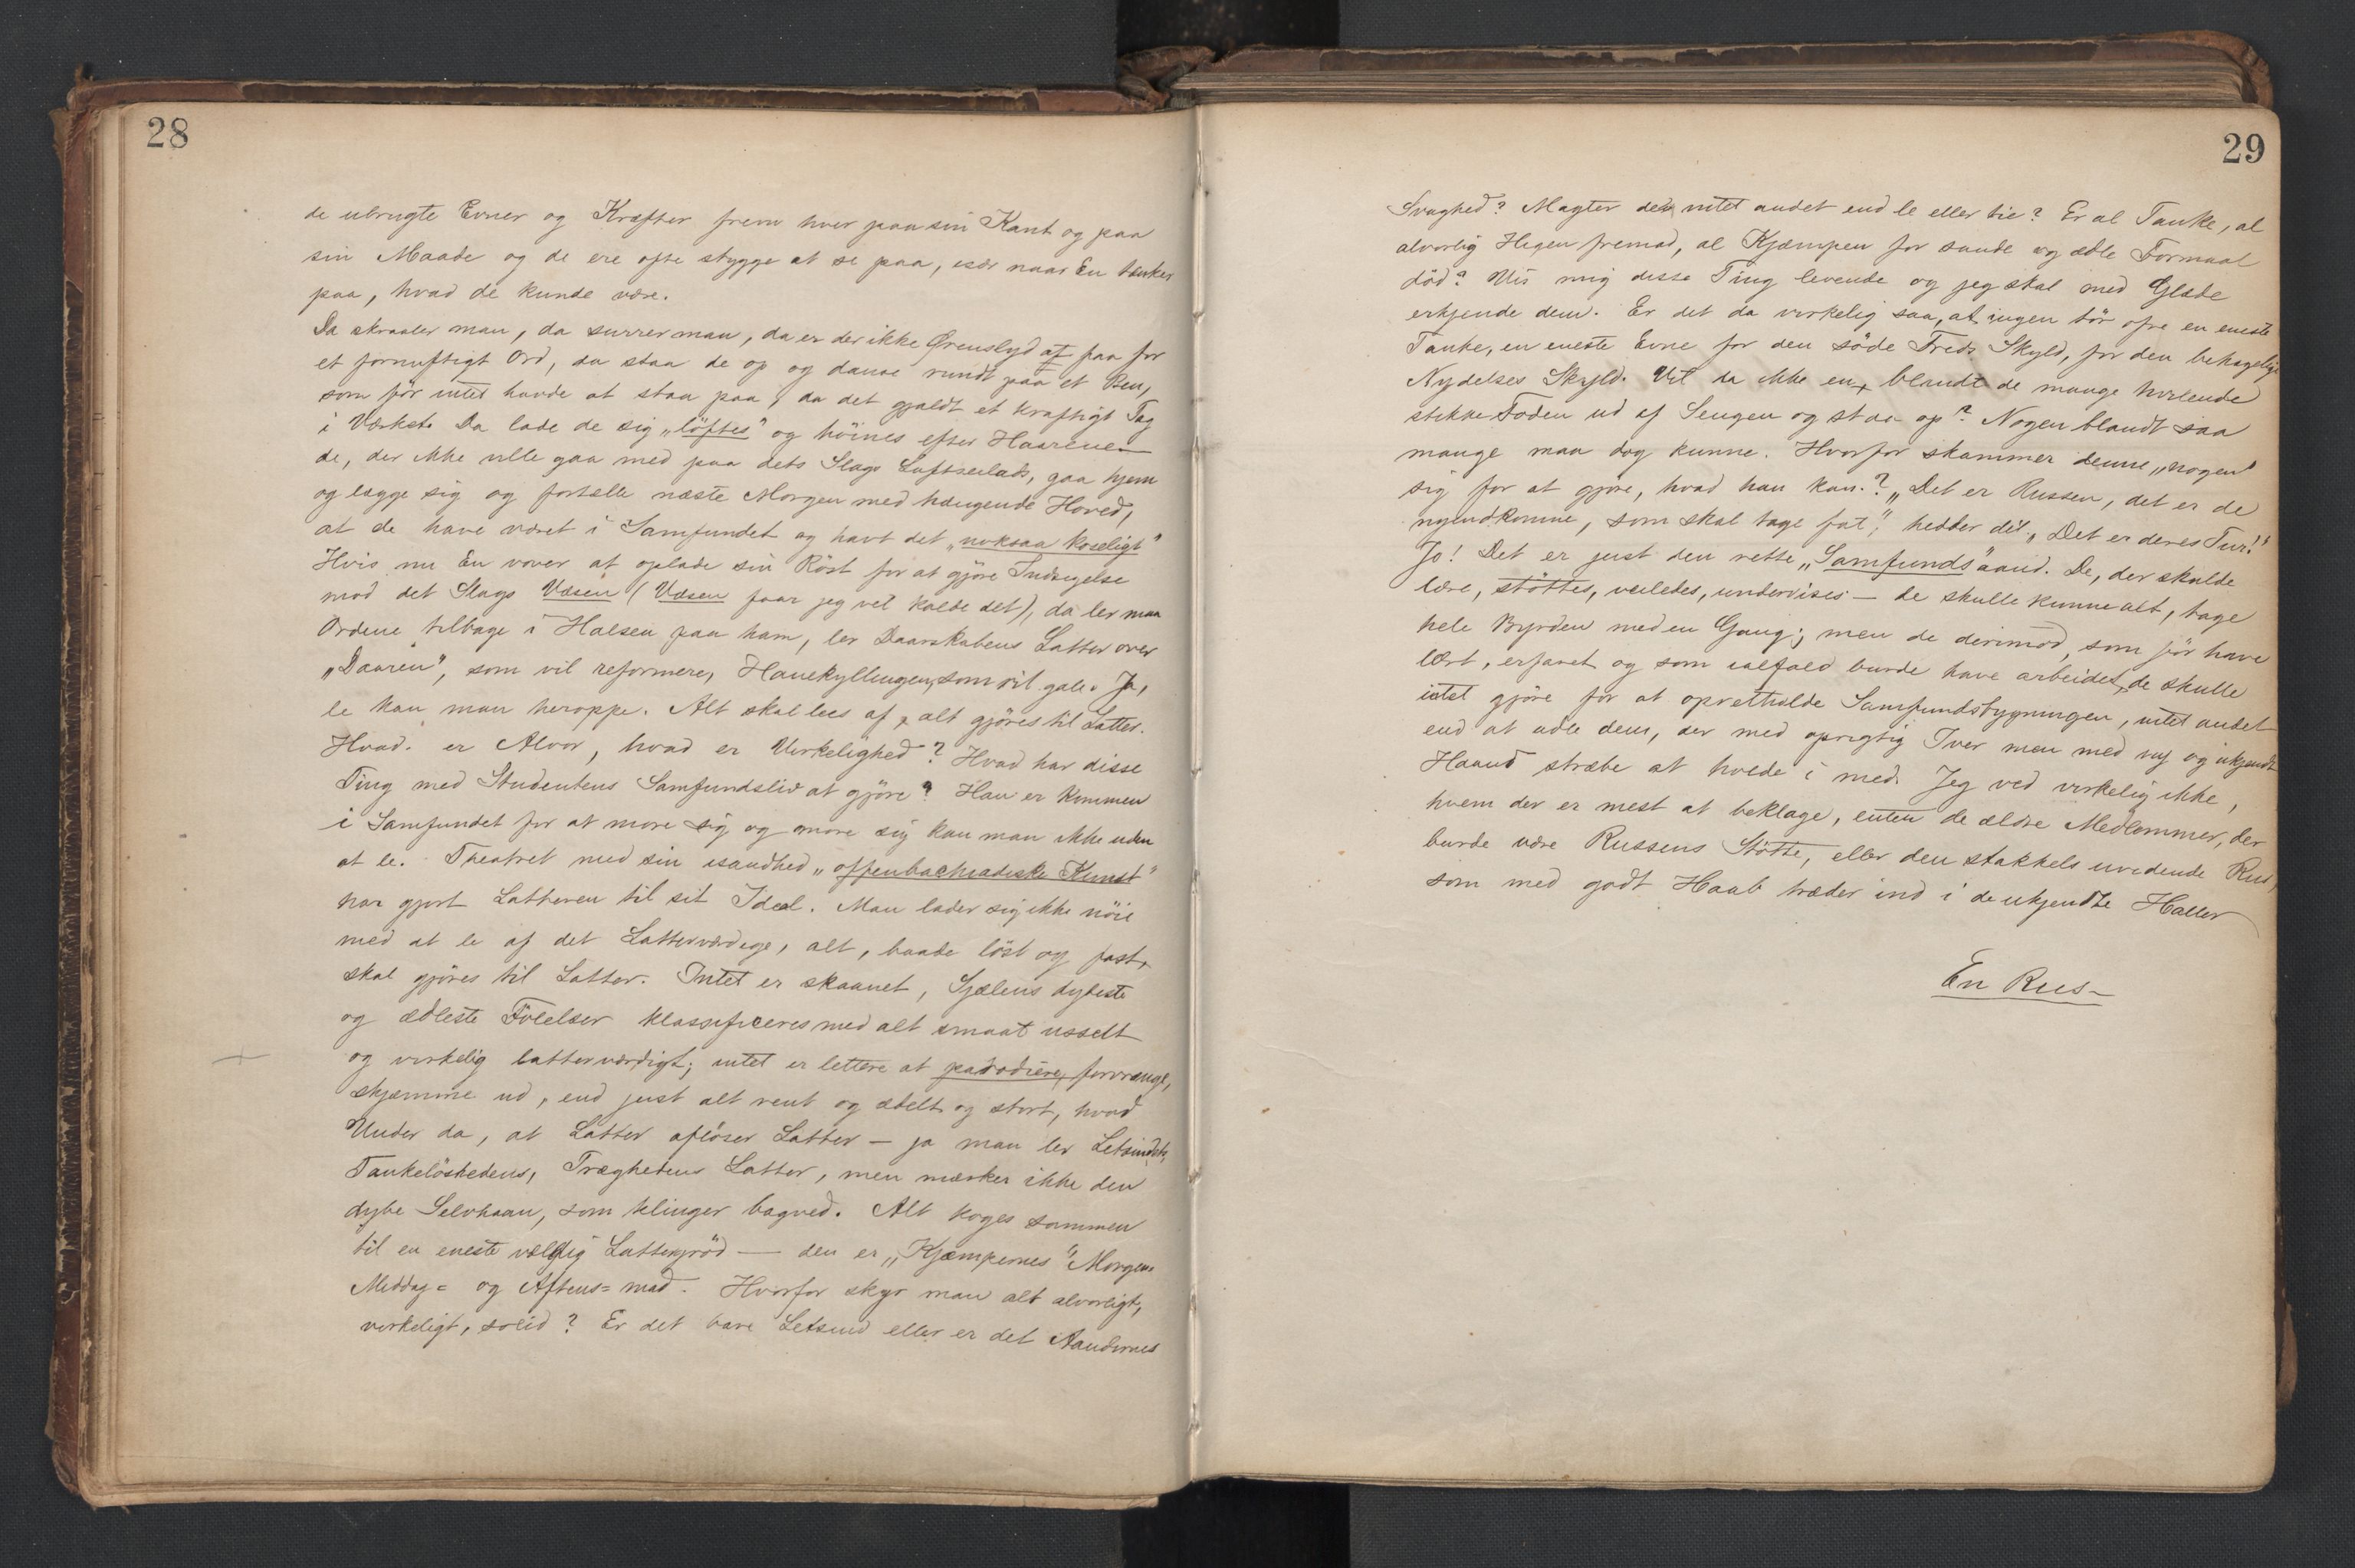 28
de ubrugte Evner og Kræfter frem hver paa sin Kant og paa
sin Maade og de ere ofte stygge at se paa, især naar En tænker
paa, hvad de kunde være.
Da skraaler man, da surrer man, da er der ikke Ørenslyd at faa for
et fornuftigt Ord, da staa de op og danse rundt paa et Ben,
som før intet havde at staa paa, da det gjaldt et kraftigt Tag
i Værket. Da lade de sig „løftes" og høines efter Haarene
de, der ikke ville gaa med paa dets Slags Luftseilads, gaa hjem
og lægge sig og fortælle næste Morgen med hængende Hoved,
at de have været i Samfundet og havt det „noksaa koseligt"
Hvis nu En vover at oplade sin Röst for at gjöre Indsigelse
mod det Slags Væsen (Væsen faar jeg vel kalde det), da ler man
Ordene tilbage i Halsen paa ham, ler Daarskabens Latter over
„Daaren", som vil reformere, Hanekyllingen, som vil gale. Ja,
le kan man heroppe. Alt skal lees af, alt gjöres til Latter.
Hvad er Alvor, hvad er Virkelighed? Hvad har disse
Ting med Studentens Samfundsliv at gjöre? Han er kommen
i Samfundet for at more sig og more sig kan man ikke uden
at le. Theatret med sin isandhed „offenbachiadiske Kunst"
har gjort Latteren til sit Ideal. Man lader sig ikke nöie
med at le af det Latterværdige, alt, baade löst og fast,
skal gjöres til Latter. Intet er skaanet, Sjælens dybeste
og ædleste Fölelser klassificeres med alt smaat usselt
og virkelig latterværdigt; intet er lettere at parodiere, forvrænge,
skjæmme ud, end just alt rent og ædelt og stort, hvad
Under da, at Latter aflöser Latter — ja man ler Letsindets,
Tankelöshedens, Træghedens Latter, men mærker ikke den
dybe Selvhaan, som klinger bagved. Alt koges sammen
til en eneste vældig Lattergröd — den er „Kjæmpernes" Morgen-
Middag- og Aftens-mad. Hvorfor skyr man alt alvorligt,
virkeligt, solid? Er det bare Letsind eller er det Aandernes
29
Svaghed? Magter de intet andet end le eller tie? Er al Tanke, al
alvorlig Higen fremad, al Kjæmpen for sande og ædle Formaal
död? Vis mig disse Ting levende og jeg skal med Glæde
erkjende dem. Er det da virkelig saa, at ingen tör ofre en eneste
Tanke, en eneste Evne for den söde Freds Skyld, for den behagelige
Nydelses Skyld. Vil da ikke en, blandt de mange hvilende
stikke Foden ud af Sengen og staa op? Nogen blandt saa
mange maa dog kunne. Hvorfor skammer denne „nogen"
sig for at gjöre, hvad han kan? „Det er Russen, det er de
nyindkomne, som skal tage fat", hedder det. „Det er deres Tur!"
Jo! Det er just den rette „Samfunds"aand. De, der skulde
lære, støttes, veiledes, undervises — de skulle kunne alt, tage
hele Byrden med en Gang; men de derimod, som för have
lært, erfaret og som ialfald burde have arbeidet, de skulle
intet gjöre for at opretholde Samfundsbygningen, intet andet
end at udle dem, der med oprigtig Iver men med ny og ukjendt
Haand stræbe at holde i med. Jeg ved virkelig ikke,
hvem der er mest at beklage, enten de ældre Medlemmer, der
burde være Russens Stötte, eller den stakkels uvidende Rus,
som med godt Haab træder ind i de ukjendte Haller
En Rus